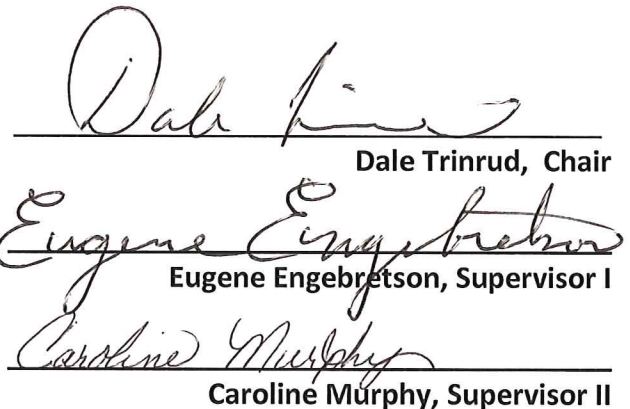 Dale
Dale Trinrud, Chair
Eugene Engebretson
Eugene Engebretson, Supervisor I
Caroline Murphy
Caroline Murphy, Supervisor II